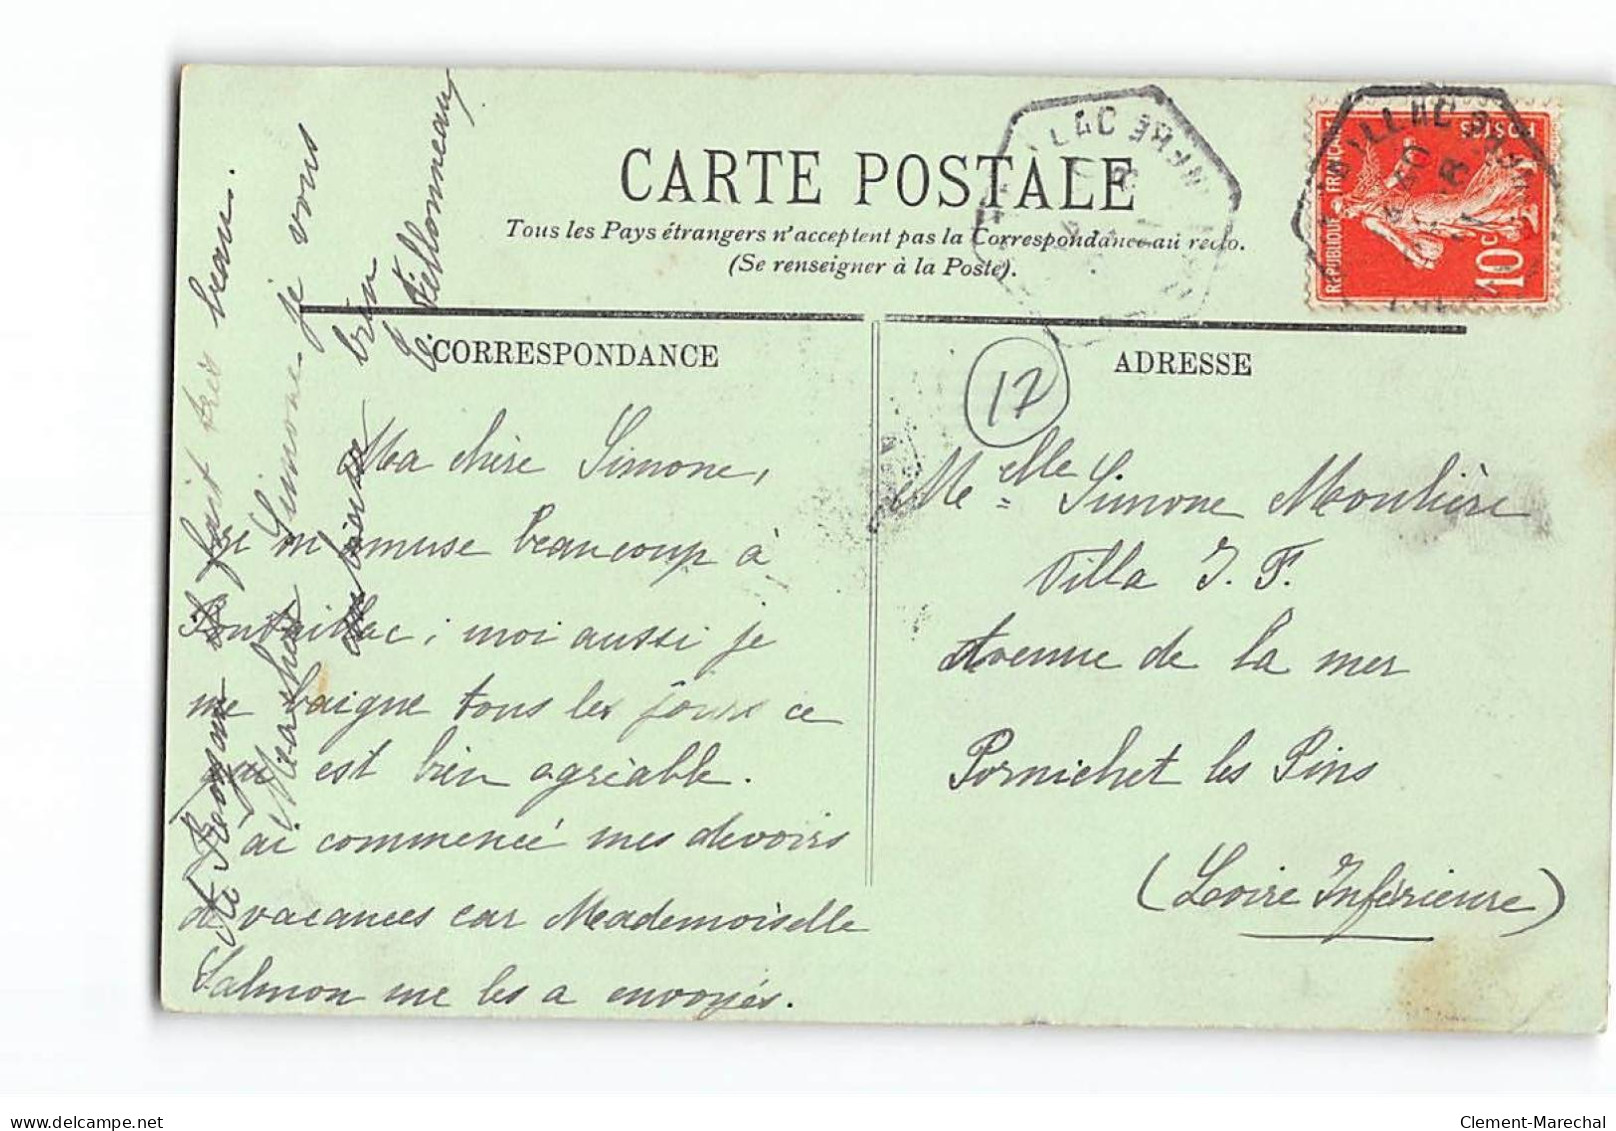 CARTE POSTALE
Tous les Pays étrangers n'acceptent pas la Correspondance au recto.
(Se renseigner à la Poste).
CORRESPONDANCE
ADRESSE
17
REPUBLIQUE FRANÇAISE
POSTES
10c
Ma chère Simone,
Je m'amuse beaucoup à
Pontaillac; moi aussi je
me baigne tous les jours ce
qui est bien agréable.
J'ai commencé mes devoirs
de vacances car Mademoiselle
Salmon me les a envoyés.
fait très beau.
Simone je vous
bien
Melle Simone Moulière
Villa J. F.
Avenue de la mer
Pornichet les Pins
(Loire Inférieure)
Clement-Marechal